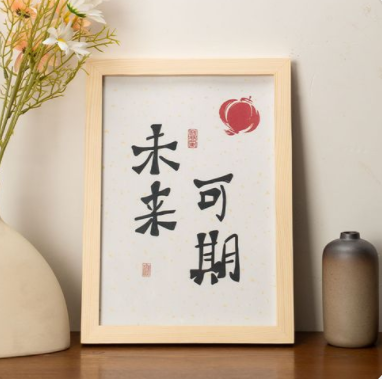 未来
可期